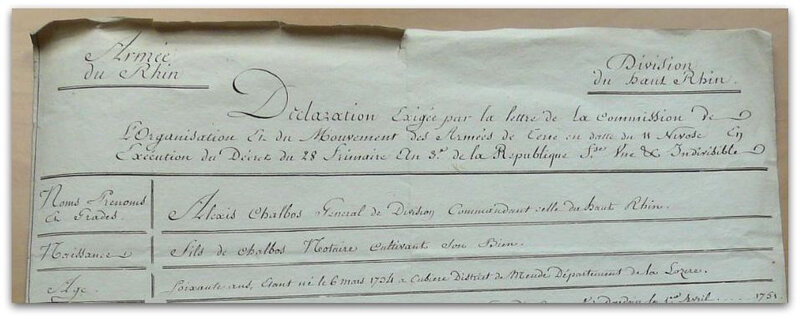 Armée
du Rhin
Division
du haut Rhin.
Déclaration Exigée par la lettre de la Commission de
L'Organisation Et du Mouvement des Armées de Terre en datte du 11 Nivose En
Exécution du Décret du 28 frimaire An 3e. de la République Vne & Indivisible
Noms Prenoms
& Grades.
Alexis Chalbos General de Division Commandant celle du haut Rhin.
Naissance
Fils de Chalbos Notaire Cultivant Son Bien.
Age
Soixante ans, Etant né le 6 mars 1734 a Cubiere District de Mende Département de la Lozere.
Avril .... 1751